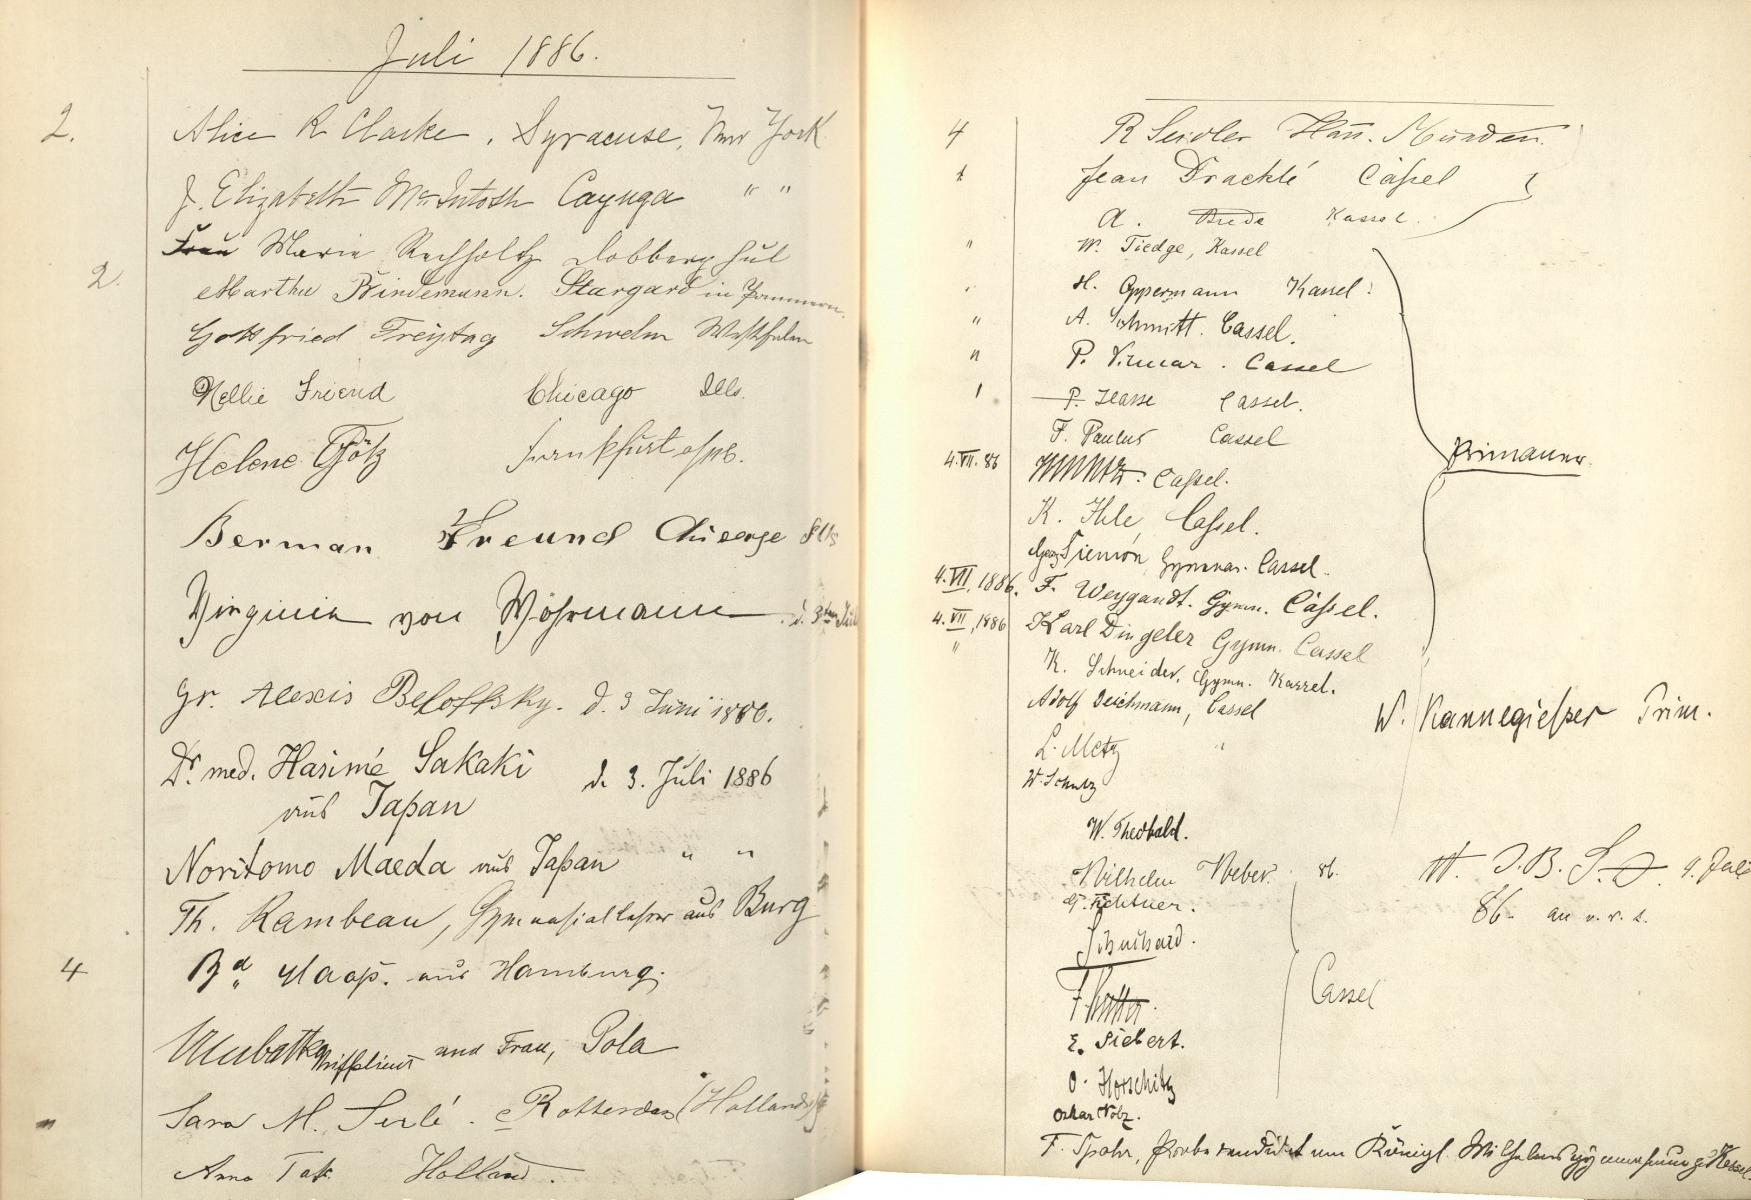 Juli 1886.
2. Alice R Clarke, Syracuse, New York
J. Elizabeth McIntosh Cayuga " "
Frau Marie
2. Martha Stargard in Pommern.
Gottfried Freytag Schwelm Westfalen
Nellie Friend Chicago Ills.
Helene Götz Frankfurt
Berman Freund Chicago Ills
Virginia von Wöhrmann. d. 3ten Juli
Gr. Alexis d. 3 Juni 1886.
Dr. med. Hasimé Sakaki d. 3. Juli 1886
aus Japan
Noritomo Maeda aus Japan " "
Th. Kambeau, Gymnasiallehrer aus Burg
4 aus Hamburg.
und Frau, Pola
" Sara M. Serlé. Rotterdam (Holland)
Anna Tak Holland.
4 R Seidler Hann. Münden.
Jean Draché Cassel
A. Kassel.
" W. Tiedge, Kassel
H. Oppermann Kassel.
" A. Schmitt. Cassel.
" P. Vilmar. Cassel
P. Hasse Cassel.
F. Paulus Cassel
Primaner.
4.VII.86 Cassel.
K. Ihle Cassel.
Georg Gymnas. Cassel.
4.VII.1886. F. Weygandt. Gymn. Cassel.
4.VII.1886 Karl Dingeler Gymn. Cassel
" K. Schneider. Gymn. Kassel.
Adolf Deichmann, Cassel
W. Kannegießer Prim.
L. Metz "
W. Schultz
W. Theobald.
Wilhelm Weber. 86.
4. Juli
86.
Schuchard.
Cassel
E. Siebert.
O. Horschitz
Oskar Nolz.
F. Spohr, Probekandidat am Königl. Wilhelmsgymnasium zu Kassel.